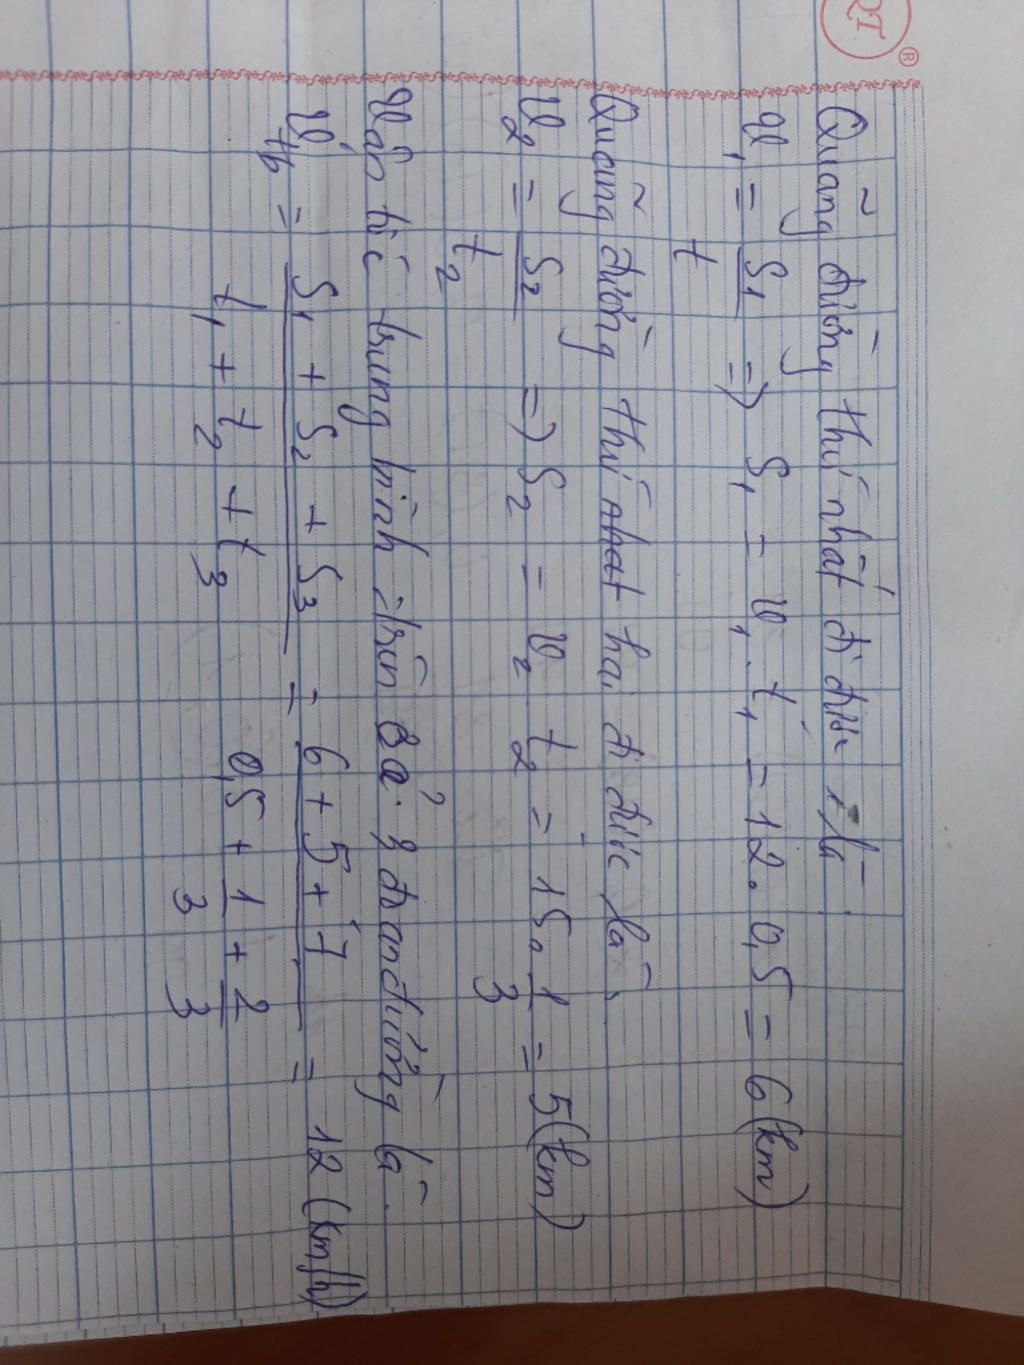 QT ®
Quãng đường thứ nhất đi được là
v₁ = S₁/t => S₁ = v₁.t₁ = 12.0,5 = 6(km)
Quãng đường thứ nhat hai đi được là
v₂ = S₂/t₂ => S₂ = v₂ t₂ = 15.1/3 = 5(km)
Vân tốc trung bình trên cả 3 đoan đường là
v_tb = (S₁ + S₂ + S₃)/(t₁ + t₂ + t₃) = (6 + 5 + 7)/(0,5 + 1/3 + 2/3) = 12 (km/h)